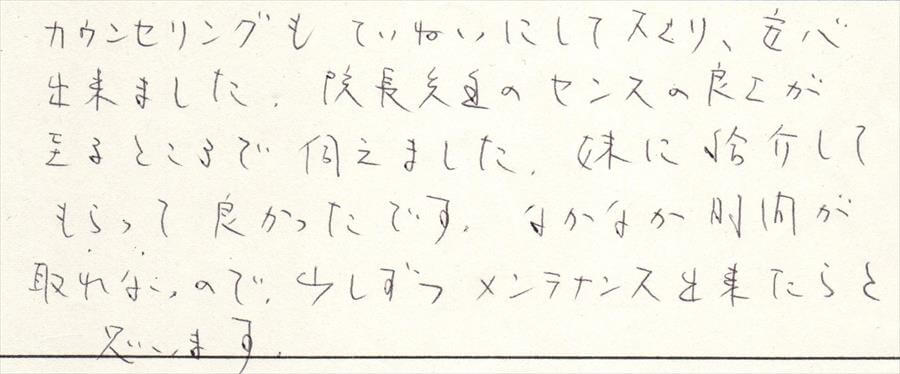 カウンセリングも ていねいにして下さり、安心
出来ました。院長先生のセンスの良さが
至るところで 伺えました。妹に紹介して
もらって 良かったです。なかなか時間が
取れないので、少しずつ メンテナンス出来たらと
思います。